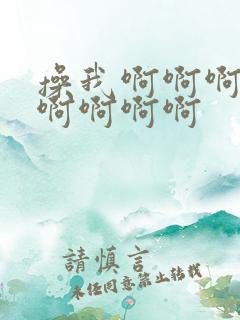 操我 啊啊啊
啊啊啊啊
請慎言
未經同意禁止轉載